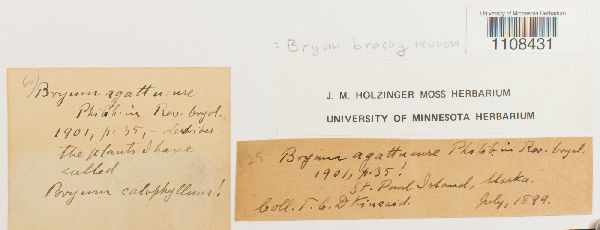 University of Minnesota Herbarium
1108431
= Bryum brachyneuron
J. M. HOLZINGER MOSS HERBARIUM
UNIVERSITY OF MINNESOTA HERBARIUM
6)
Bryum agattuense
Philib. in Rev. bryol.
1901, p. 35, -
the plants I have
called
Bryum calophyllum!
25 Bryum agattuense Philib. in Rev. bryol.
1901, p. 35!
St. Paul Island, Alaska.
Coll. T. C. D Kincaid. July, 1899.